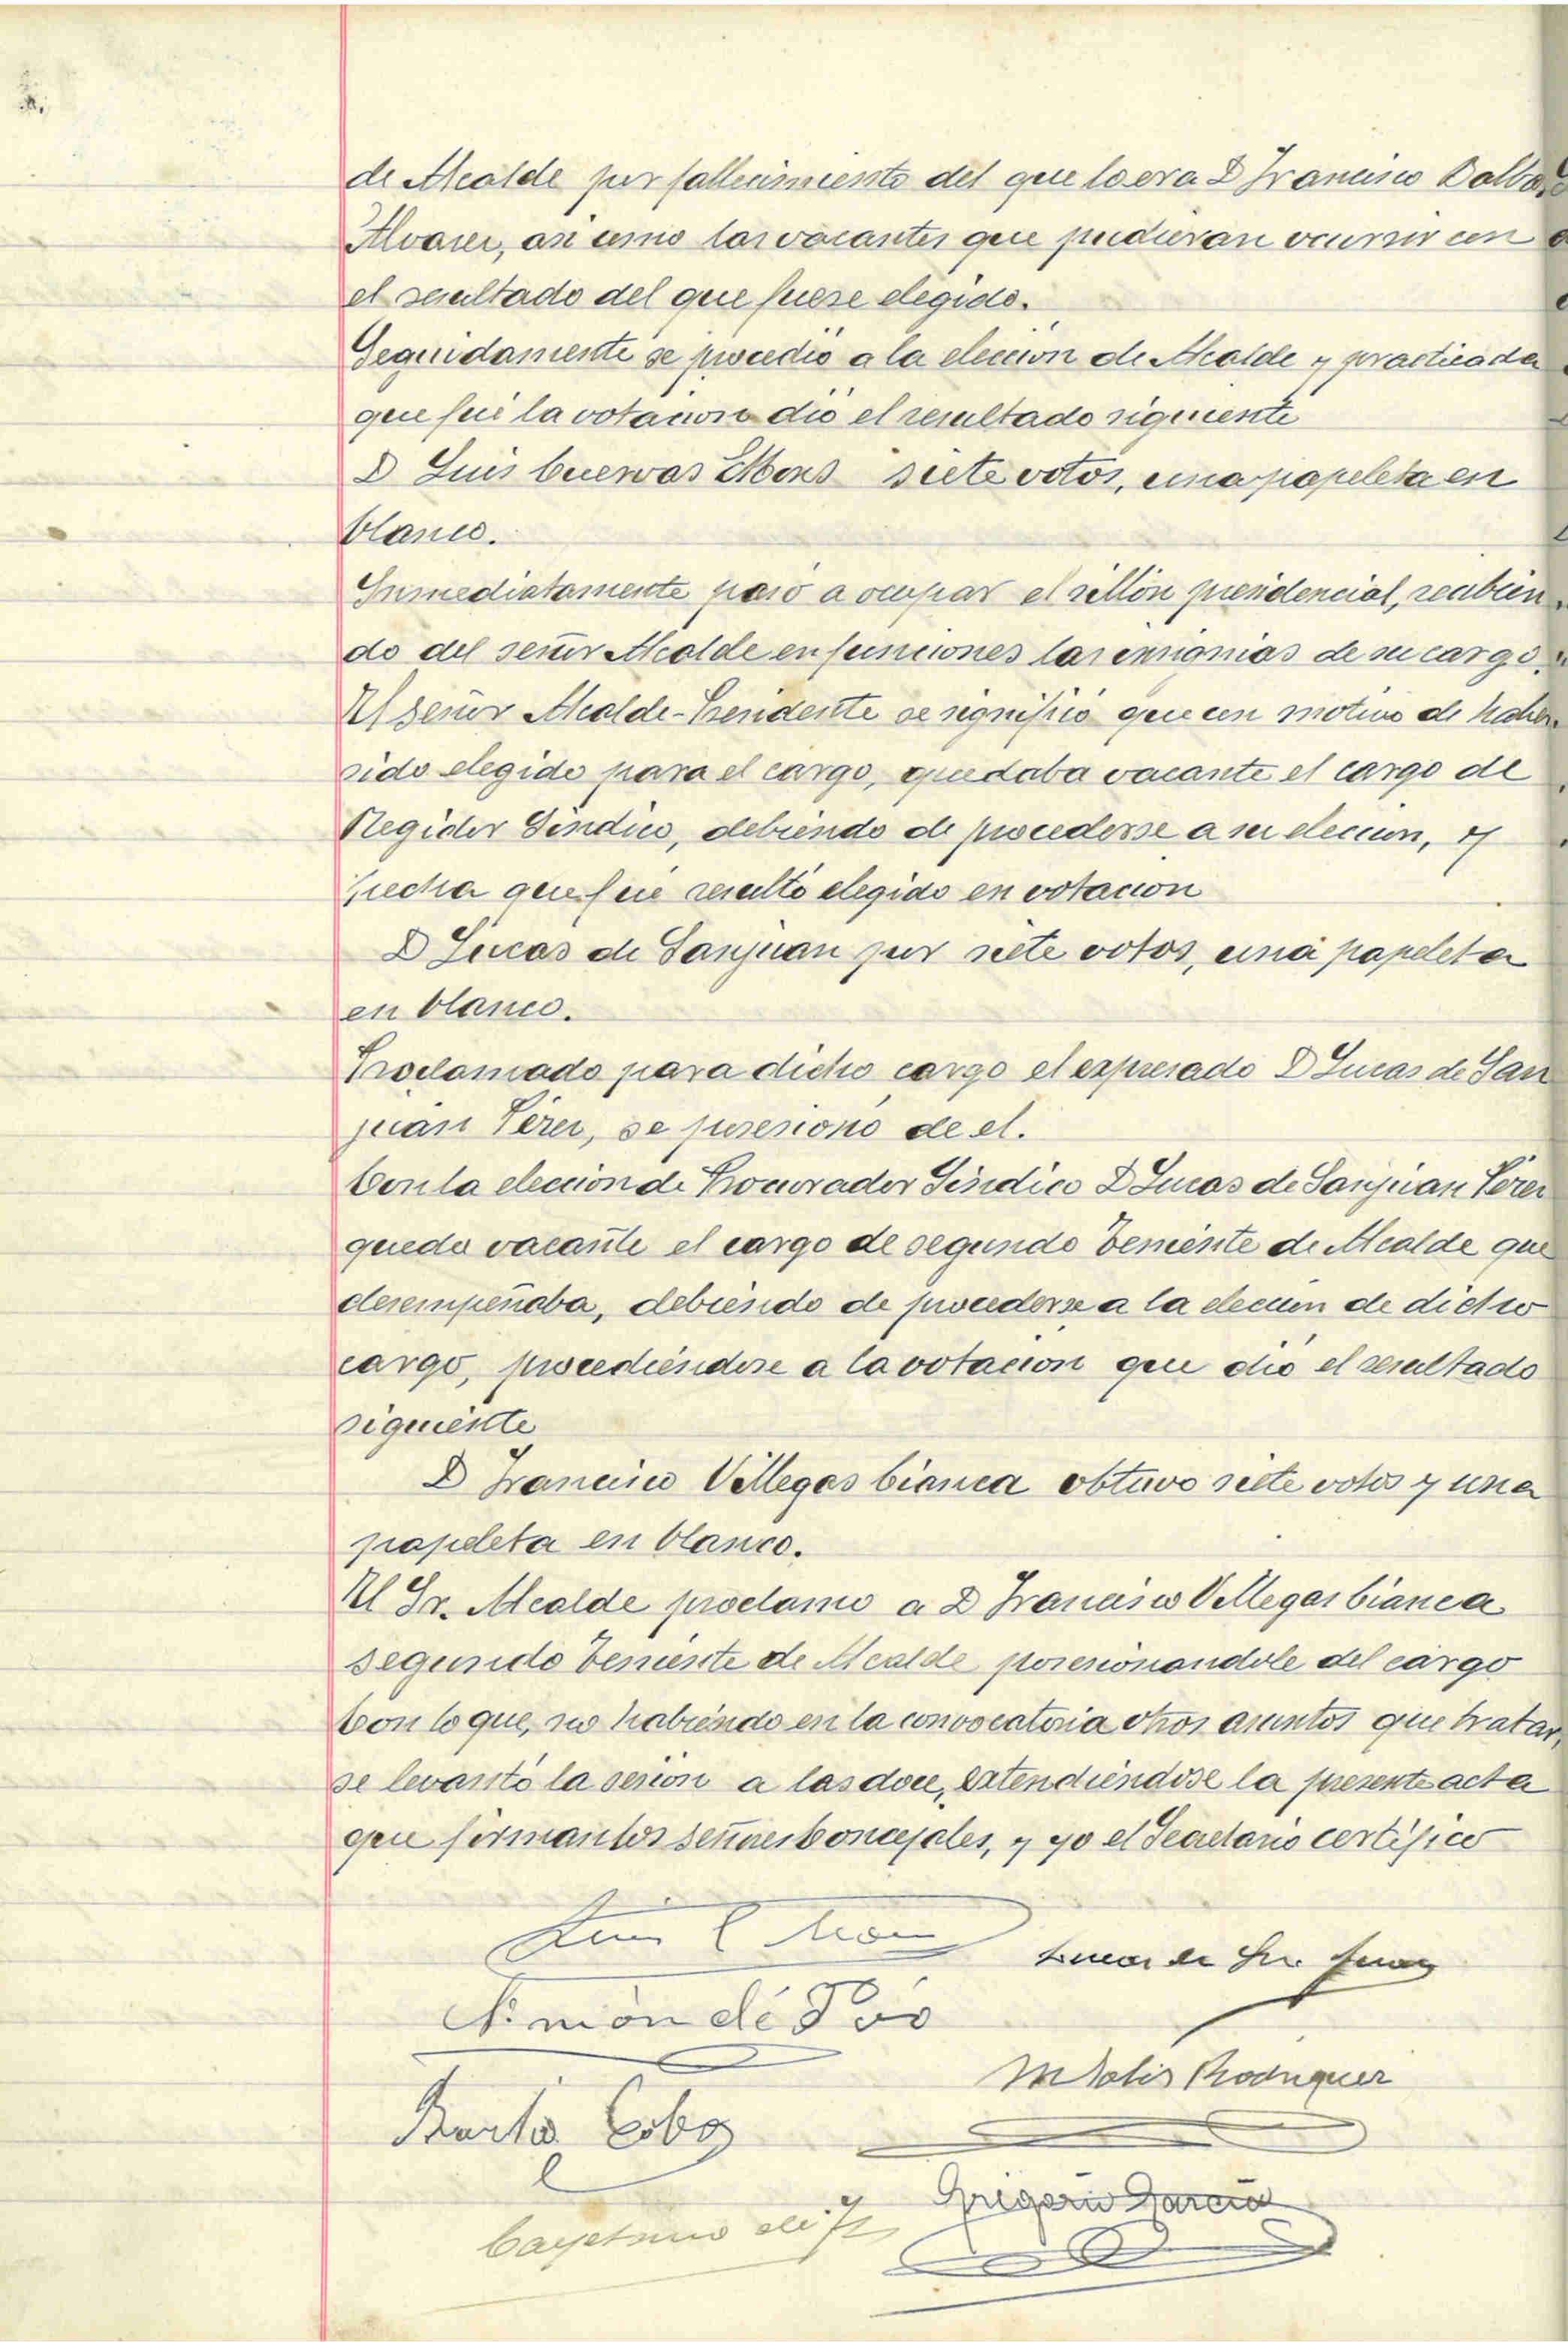 de Alcalde por fallecimiento del que lo era D Francisco
Alvarez, asi como las vacantes que pudieran ocurrir con
el resultado del que fuese elegido.
Seguidamente se procedió a la elección de Alcalde y practicada
que fué la votacion dió el resultado siguiente
D Luis Cuervas Mons siete votos, una papeleta en
blanco.
Inmediatamente pasó a ocupar el sillón presidencial, recibien
do del señor Alcalde en funciones las insignias de su cargo.
El señor Alcalde-Presidente se significó que con motivo de haber
sido elegido para el cargo, quedaba vacante el cargo de
Regidor Sindico, debiendo de procederse a su eleccion, y
hecha que fué resultó elegido en votacion
D Lucas de Sanjuan por siete votos, una papeleta
en blanco.
Proclamado para dicho cargo el expresado D Lucas de San
juan Pérez, se posesionó de el.
Con la elección de Procurador Sindico D Lucas de Sanjuan Pérez
queda vacante el cargo de segundo Teniente de Alcalde que
desempeñaba, debiendo de procederse a la eleccion de dicho
cargo, procediéndose a la votacion que dió el resultado
siguiente
D Francisco Villegas Cianca obtuvo siete votos y una
papeleta en blanco.
El Sr. Alcalde proclamo a D Francisco Villegas Cianca
segundo Teniente de Alcalde posesionandole del cargo
Con lo que, no habiendo en la convocatoria otros asuntos que tratar,
se levantó la sesion a las doce, extendiéndose la presente acta
que firman los señores Concejales, y yo el Secretario certifico
Luis C Mons
Lucas de San Juan
Simón de
M Solis Rodriguez
Cobo
Gregorio Garcia
Cayetano de